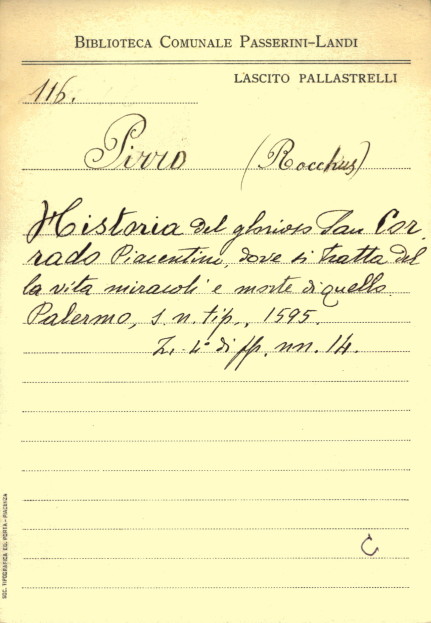 BIBLIOTECA COMUNALE PASSERINI-LANDI
LASCITO PALLASTRELLI
116.
Pirro (Rocchus)
Historia del glorioso San Cor
rado Piacentino, dove si tratta del
la vita miracoli e morte di quello.
Palermo, s. n. tip., 1595.
4° di pp. nn. 14.
C
SOC. TIPOGRAFICA ED. PORTA - PIACENZA